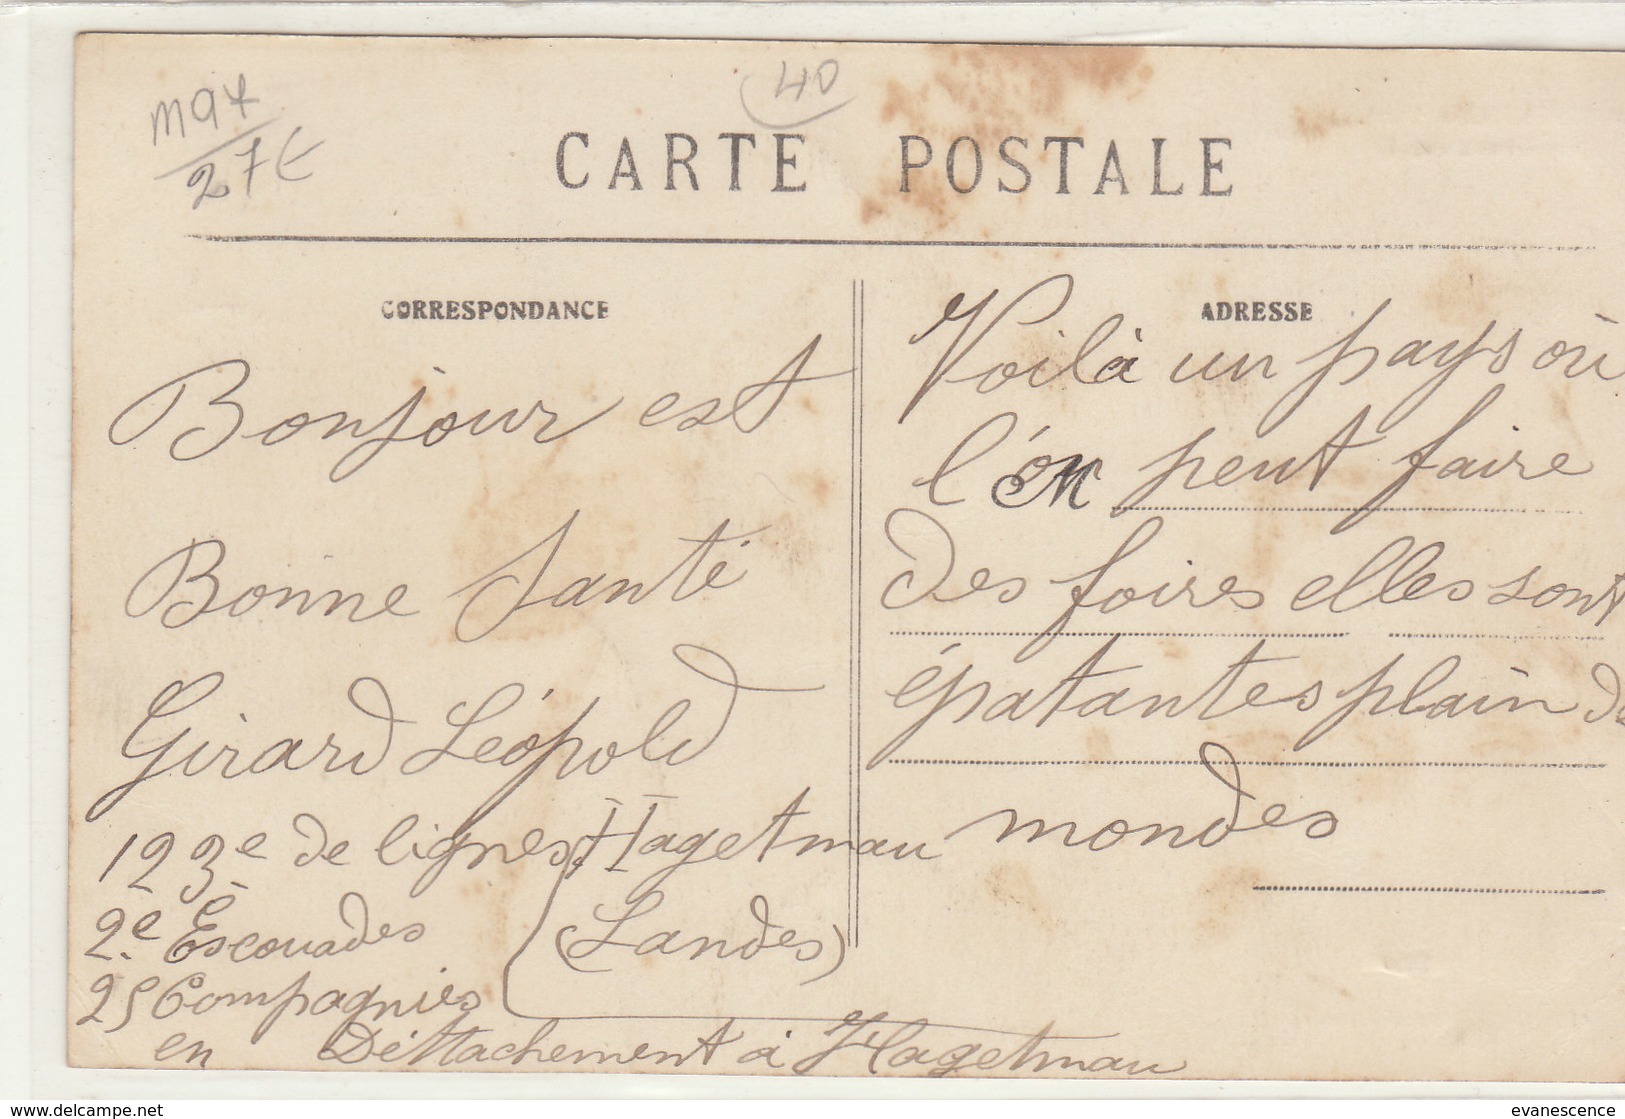 M94
27€
40
CARTE POSTALE
CORRESPONDANCE
Bonjour est
Bonne Santé
Girard Léopold
123e de lignes Hagetmau
2e Escouades (Landes)
25 Compagnies
en Déttachement à Hagetmau
ADRESSE
Voilà un pays où
l'on peut faire
des foires elles sont
épatantes plain de
mondes
evanescence